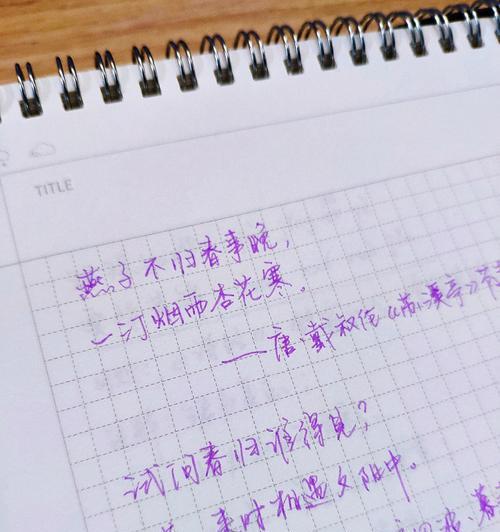 TITLE
燕子不归春事晚，
一汀烟雨杏花寒。
——唐·戴叔伦《苏溪亭》
试问春归谁得见？
来时相遇夕阳中。